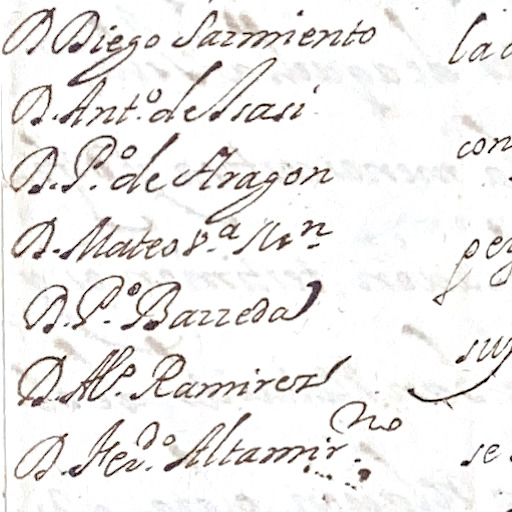 D Diego Sarmiento
D. Ant.º de Isasi
D. P.º de Aragon
D. Mateo
D. P.º Barreda
D. Al.º Ramirez
D. Fer.do Altamir.no
con
se